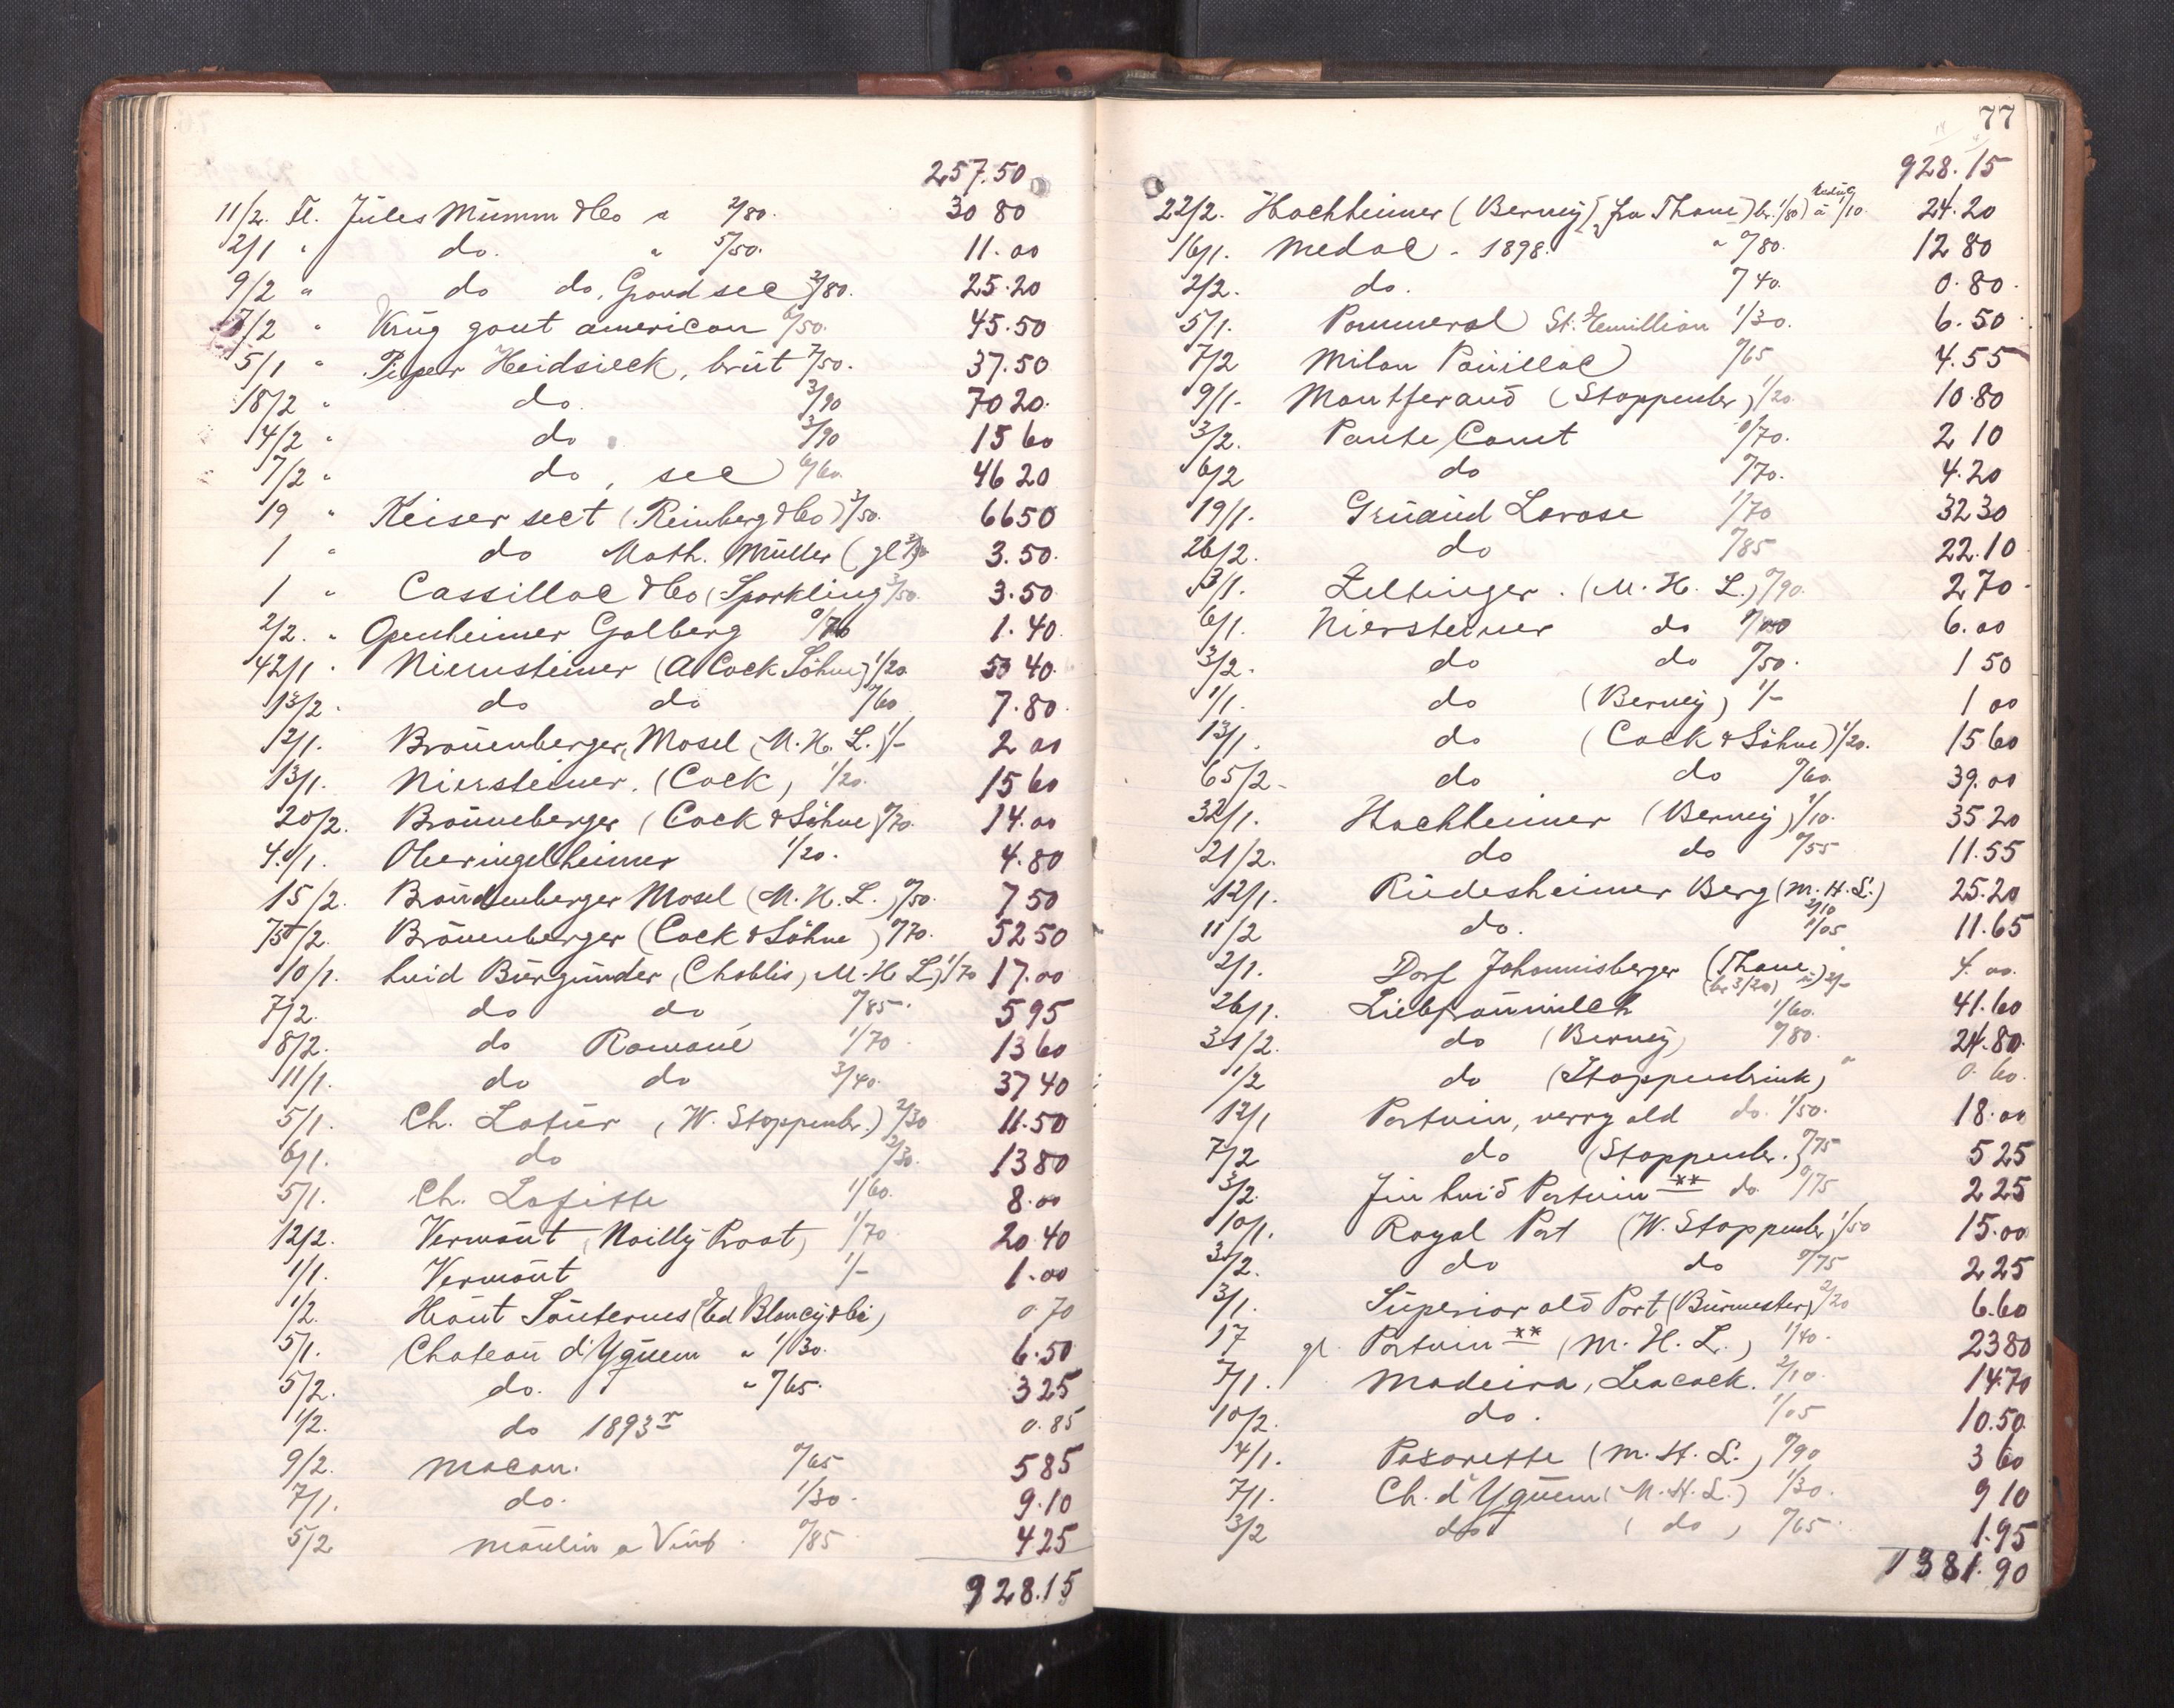 257.50
11/2. Fl. Jules Mumm & Co a 2/80. 30 80
2/1 " do. " 5/50. 11.00
9/2 " do do, Grand sec 2/80. 25.20
7/2 " Krug gout american 6/50. 45.50
5/1 " Piper Heidsieck, brut 7/50. 37.50
18/2 " do. 3/90 70 20.
4/2 " do 3/90 15 60
7/2 " do, sec 6/60. 46 20
19 " Keiser sect (Reinberg & Co) 3/50. 66 50
1 " do Math. Müller (gl 3/50 3.50.
1 " Cassillac & Co (Sparkling 3/50. 3.50
2/2. " Openheimer Golberg 0/70 1.40.
42/1 " Niernsteiner (A Cock Söhne) 1/20 50 40.
13/2 " do do 0/60 7.80.
2/1. Braunenberger, Mosel (M. H. L.) 1/- 2 00
13/1. Niersteiner. (Cock, 1/20. 15 60
20/2. Brauneberger (Cock & Söhne 0/70. 14.00
4./1. Oberingelheimer 1/20. 4.80
15/2. Braunenberger Mosel (M. H. L. 0/50. 7 50
75/2. Braunenberger (Cock & Söhne) 0/70. 52 50
10/1. hvid Burgunder, (Chablis, M. H. L.) 1/70 17.00
7/2. do do 0/85. 5 95
8/2. do Romane 1/70. 13 60
11/1. do do 3/40. 37 40
5/1. Ch. Latur, (W. Stoppenbr.) 2/30 11.50
6/1. do 2/30. 13 80
5/1. Ch. Lafitte 1/60. 8.00
12/2. Vermout (Noilly Prat) 1/70. 20.40
1/1. Vermout 1/- 1.00
1/2. Haut Sauternes (Ed Blancy & Co) 0.70
5/1. Chateau d'Yquem a 1/30. 6.50
5/2. do. " 0/65. 3 25
1/2. do 1893r 0.85
9/2. Macon. 0/65 5 85
7/1. do. 1/30. 9.10
5/2 Moulin a Vent. 0/85 4 25
928.15
77
928.15
22/2. Hochheimer (Berney) (fra Thane) br. 1/80) a 1/10. 24.20
16/1. Medoc. 1898. " 0/80. 12 80
2/2. do. 0/40. 0.80.
5/1. Pommerol St. Emillion 1/30. 6.50.
7/2 Milon Pauillac 0/65 4.55
9/1. Montferand (Stoppenbr.) 1/20. 10.80
3/2. Ponte Canet 0/70. 2 10
6/2 do 0/70. 4.20
19/1. Gruaud Larose 1/70 32 30
26/2. do 0/85 22.10
3/1. Zeltinger. (M. H. L.) 0/90. 2 70
6/1. Niersteiner do 6.00
3/2. do do 0/50. 1 50
1/1. do (Berney) 1/- 1 00
13/1. do (Cock & Söhne) 1/20. 15 60
65/2. do do 0/60. 39.00
32/1. Hochheimer (Berney) 1/10. 35 20
21/2. do do 0/55 11.55
12/1. Rüdesheimer Berg (M. H. L.) 2/10 25.20
11/2 do. 1/05 11.65
2/1. Dorf Johannisberger (Thane (br 3/20) a) 2/- 4.00.
26/1. Liebfraumilch 1/60. 41.60
31/2. do (Berney) 0/80. 24.80.
1/2 do (Stoppenbrink) " 0.60.
12/1 Portvin, verry old do. 1/50. 18.00
7/2 do (Stoppenbr.) 0/75 5 25
3/2. Fin hvid Portvin ** do. 0/75 2 25
10/1. Royal Port (W. Stoppenbr) 1/50 15.00
3/2. do do 0/75 2 25
3/1. Superior old Port (Burmester) 2/20 6.60
17 gl. Portvin ** (M. H. L.) 1/40. 23 80
7/1. Madeira, Leacock. 2/10. 14.70
10/2. do. 1/05 10.50.
4/1. Paxarette (M. H. L., 0/90 3 60
7/1. Ch. d'Yquem (M. H. L.) 1/30. 9 10
3/2 do (do) 0/65. 1.95
1381.90